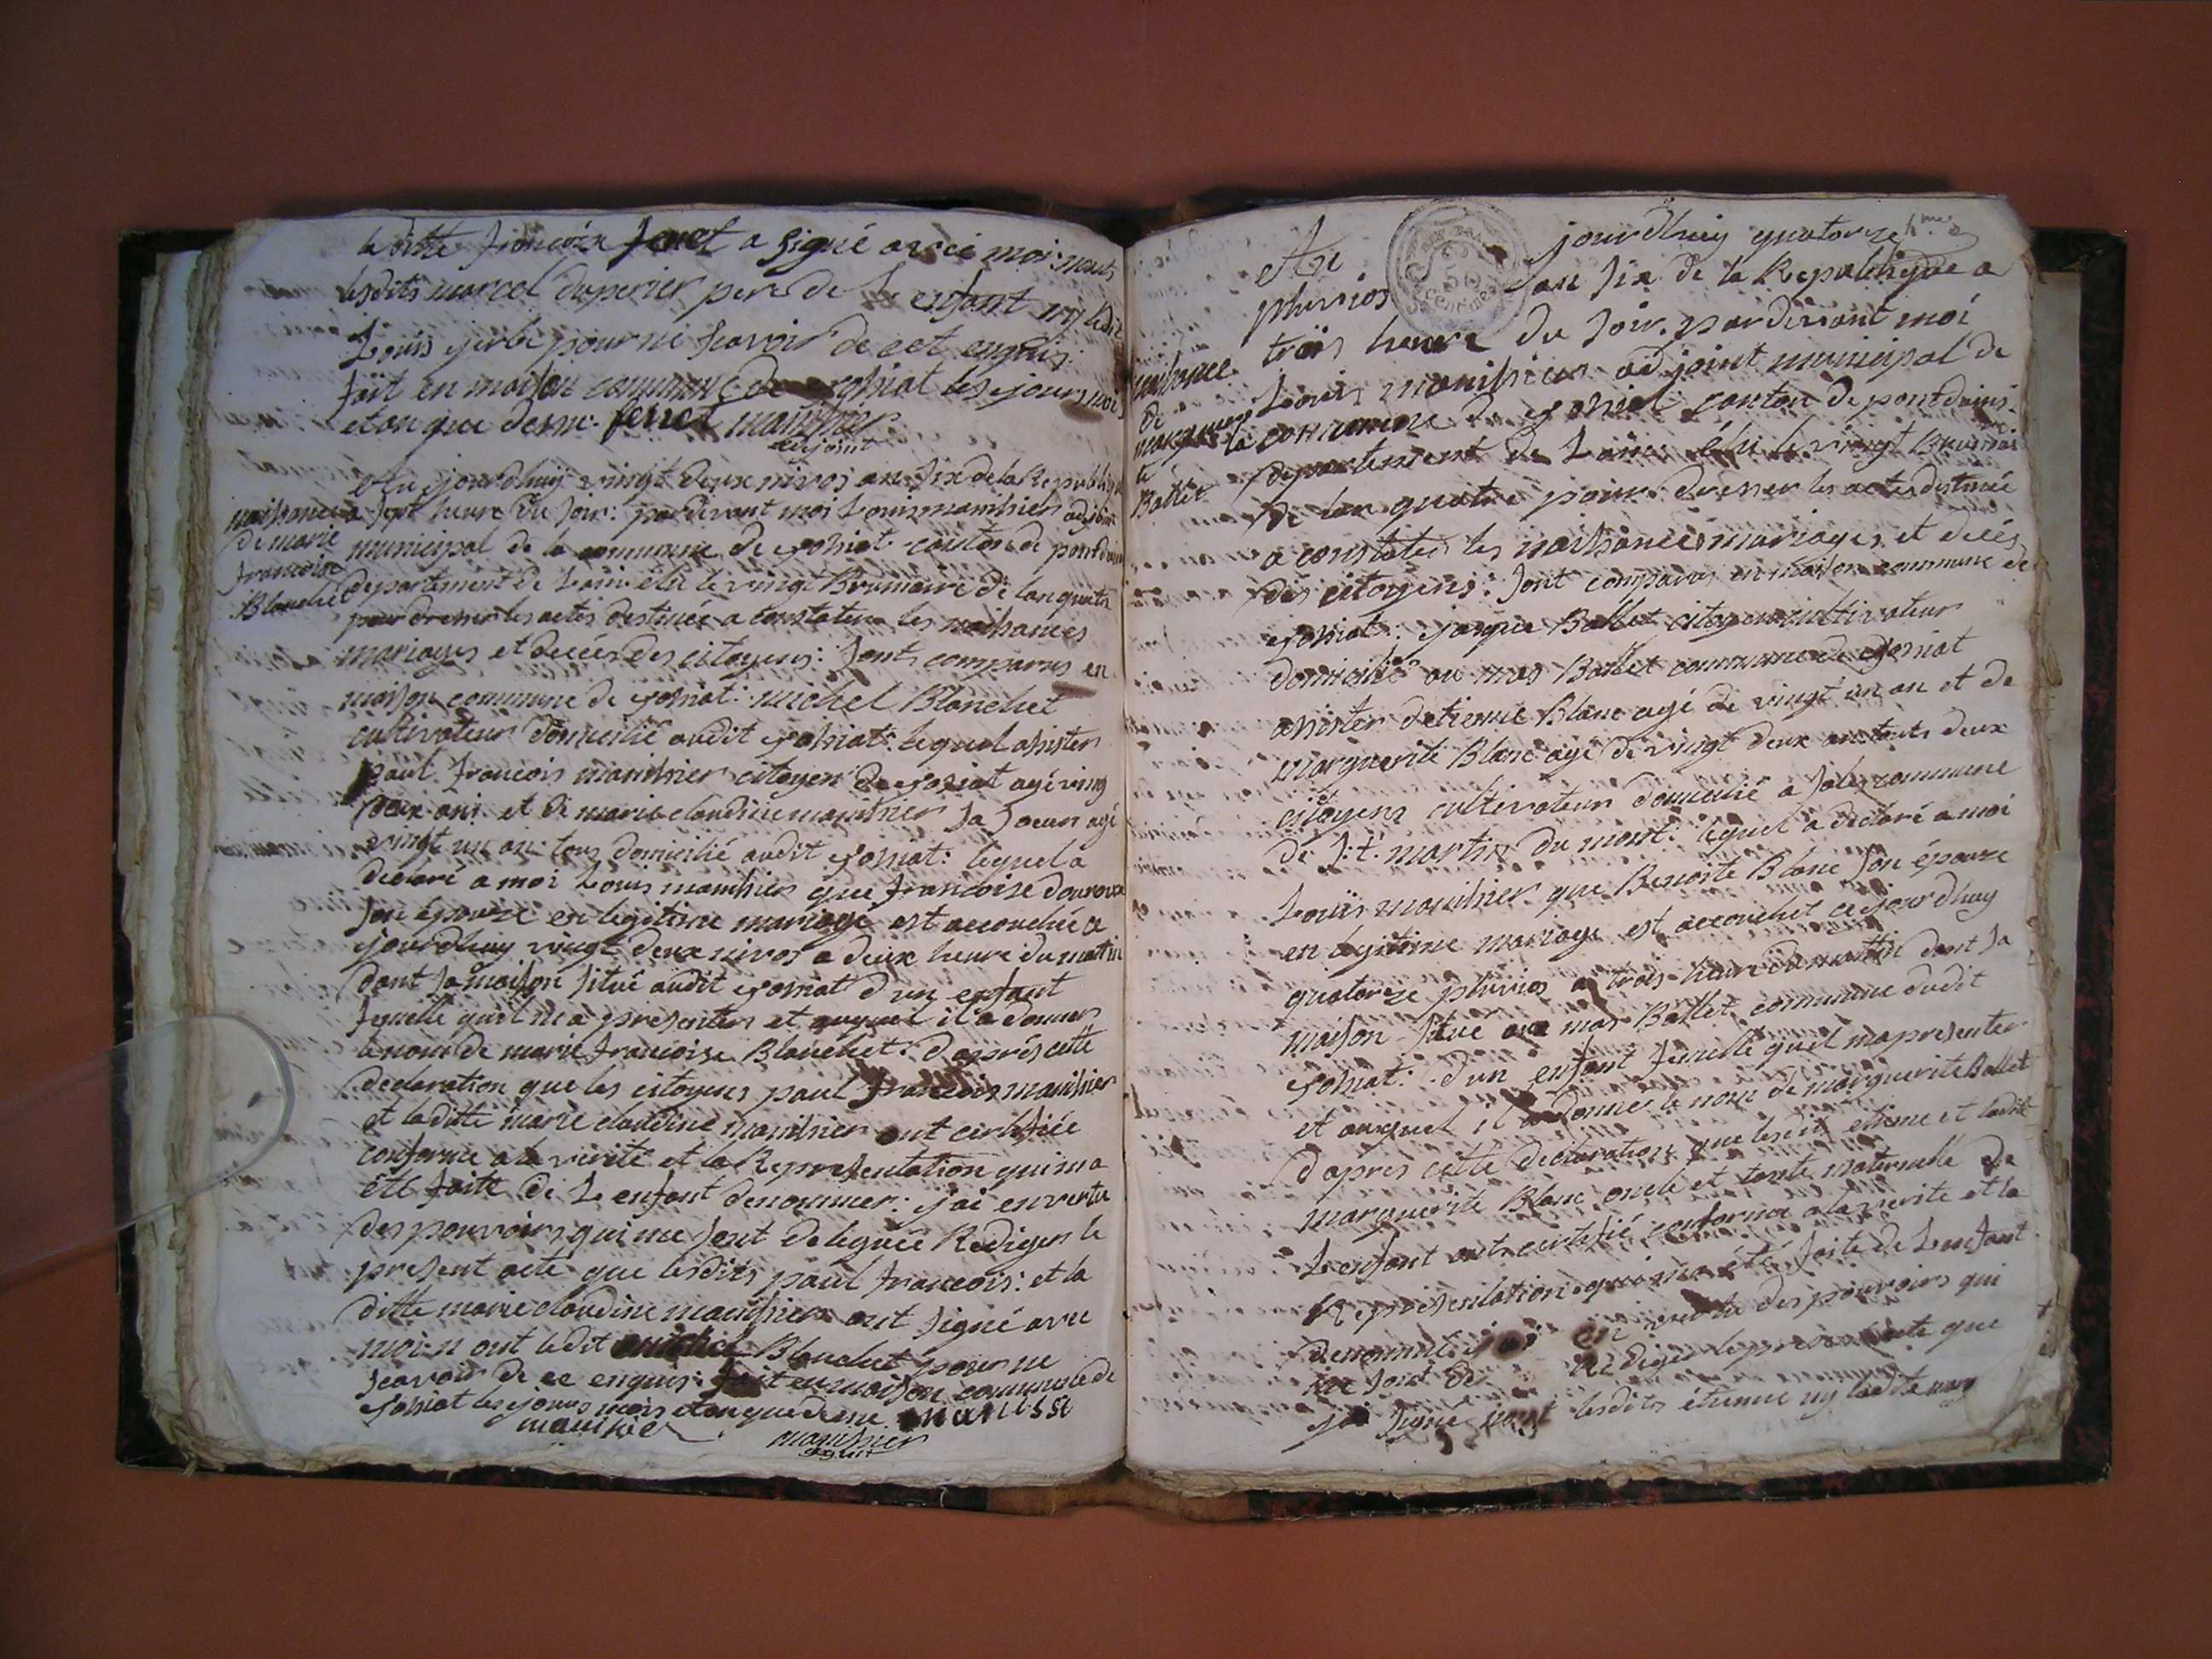 la ditte francoise ferret a signé avec moi nonts
lesdits marcel duperier pere de L enfant ny ledit
Louis gerbe pour ne scavoir de cet enquis.
fait en maison commune de josniat les jours mois
et an que dessu. ferret mauthier
adjoint
Au jourdhuy vingt deux nivos an six de la Republique
naissance a sept heure du soir: pardevant moi Louis mauthier adjoint
de marie municipal de la commune de josniat canton de pontdains
francoise departement de Lain élu le vingt Brumaire de lan quatre
Blanchet pour dresser les actes destinée a constater les naissances
mariages et decés des citoyens: sont comparus en
maison commune de josniat: michel Blanchet
cultivateur domicilié audit josniat: lequel assister
paul francois mauthier citoyen de josniat agé vingt
deux ans et de marie claudine mauthier sa soeur agé
vingt un an tous domicilié audit josniat: lequel a
declaré a moi Louis mauthier que francoise
son épouze en legitime mariage est accouchée ce
jourdhuy vingt deux nivos a deux heure du matin
dont sa maison situé audit josniat d un enfant
femelle quil m a presenter et auquel il a donner
le nom de marie francoise Blanchet. daprés cette
declaration que les citoyens paul francois mauthier
et laditte marie claudine mauthier ont certifiée
conforme a la verité et la Representation qui ma
été faite de L enfant denommer: j ai en vertu
des pouvoirs qui me sont deleguée Rediger le
present acte que lesdits paul francois: et la
ditte marie claudine mauthier ont signé avec
moi n ont ledit michel Blanchet pour ne
scavoir de ce enquis: fait en maison commune de
josniat les jours mois et an que dessu.
mauthier
mauthier
adjoint
Au jourdhuy quatorze
pluvios Lan six de la Republique a
trois heure du soir. pardevant moi
naissance Louis mauthier adjoint municipal de
de
marguerite la commune de josniat canton de pontdains
Ballet departement de Lain élu le vingt Brumaire
de lan quatre pour dresser les actes destinée
a constater les naissances mariages et decés
des citoyens: sont comparus en maison commune de
josniat: jaque Ballet citoyen cultivateur
domicilié au mas Ballet commune de josniat
assister detienne Blanc agé de vingt un an et de
marguerite Blanc agé de vingt deux an touts deux
citoyens cultivateur domicilié a commune
de S.t martin du mont: lequel a declaré a moi
Louis mauthier que Benoite Blanc son épouze
en legitime mariage est accouchet ce jourdhuy
quatorze pluvios a trois heure du matin dont sa
maison situé au mas Ballet commune dudit
josniat: d un enfant femelle quil ma presenter
et auquel il a donner le nom de marguerite Ballet
daprés cette declaration que lesdit etienne et ladite
marguerite Blanc oncle et tante maternelle de
L enfant ont certifié conforme a la verité et la
Representation qui ma été faite de L enfant
denommé. j ai en vertu des pouvoirs qui
me sont Rediger le present acte que
j ai signé nont lesdits étienne ny ladite